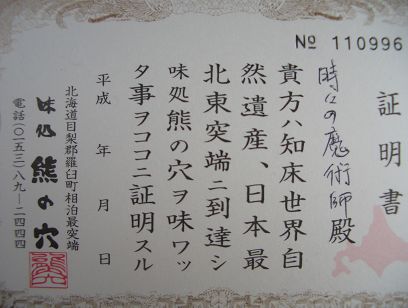 № 110996
証明書
時々の魔術師殿
貴方ハ知床世界自
然遺産、日本最
北東突端ニ到達シ
味処熊の穴ヲ味ワッ
タ事ヲココニ証明スル
平成 年 月 日
北海道目梨郡羅臼町相泊最突端
味処 熊の穴
電話(〇一五三)八九―二四四四